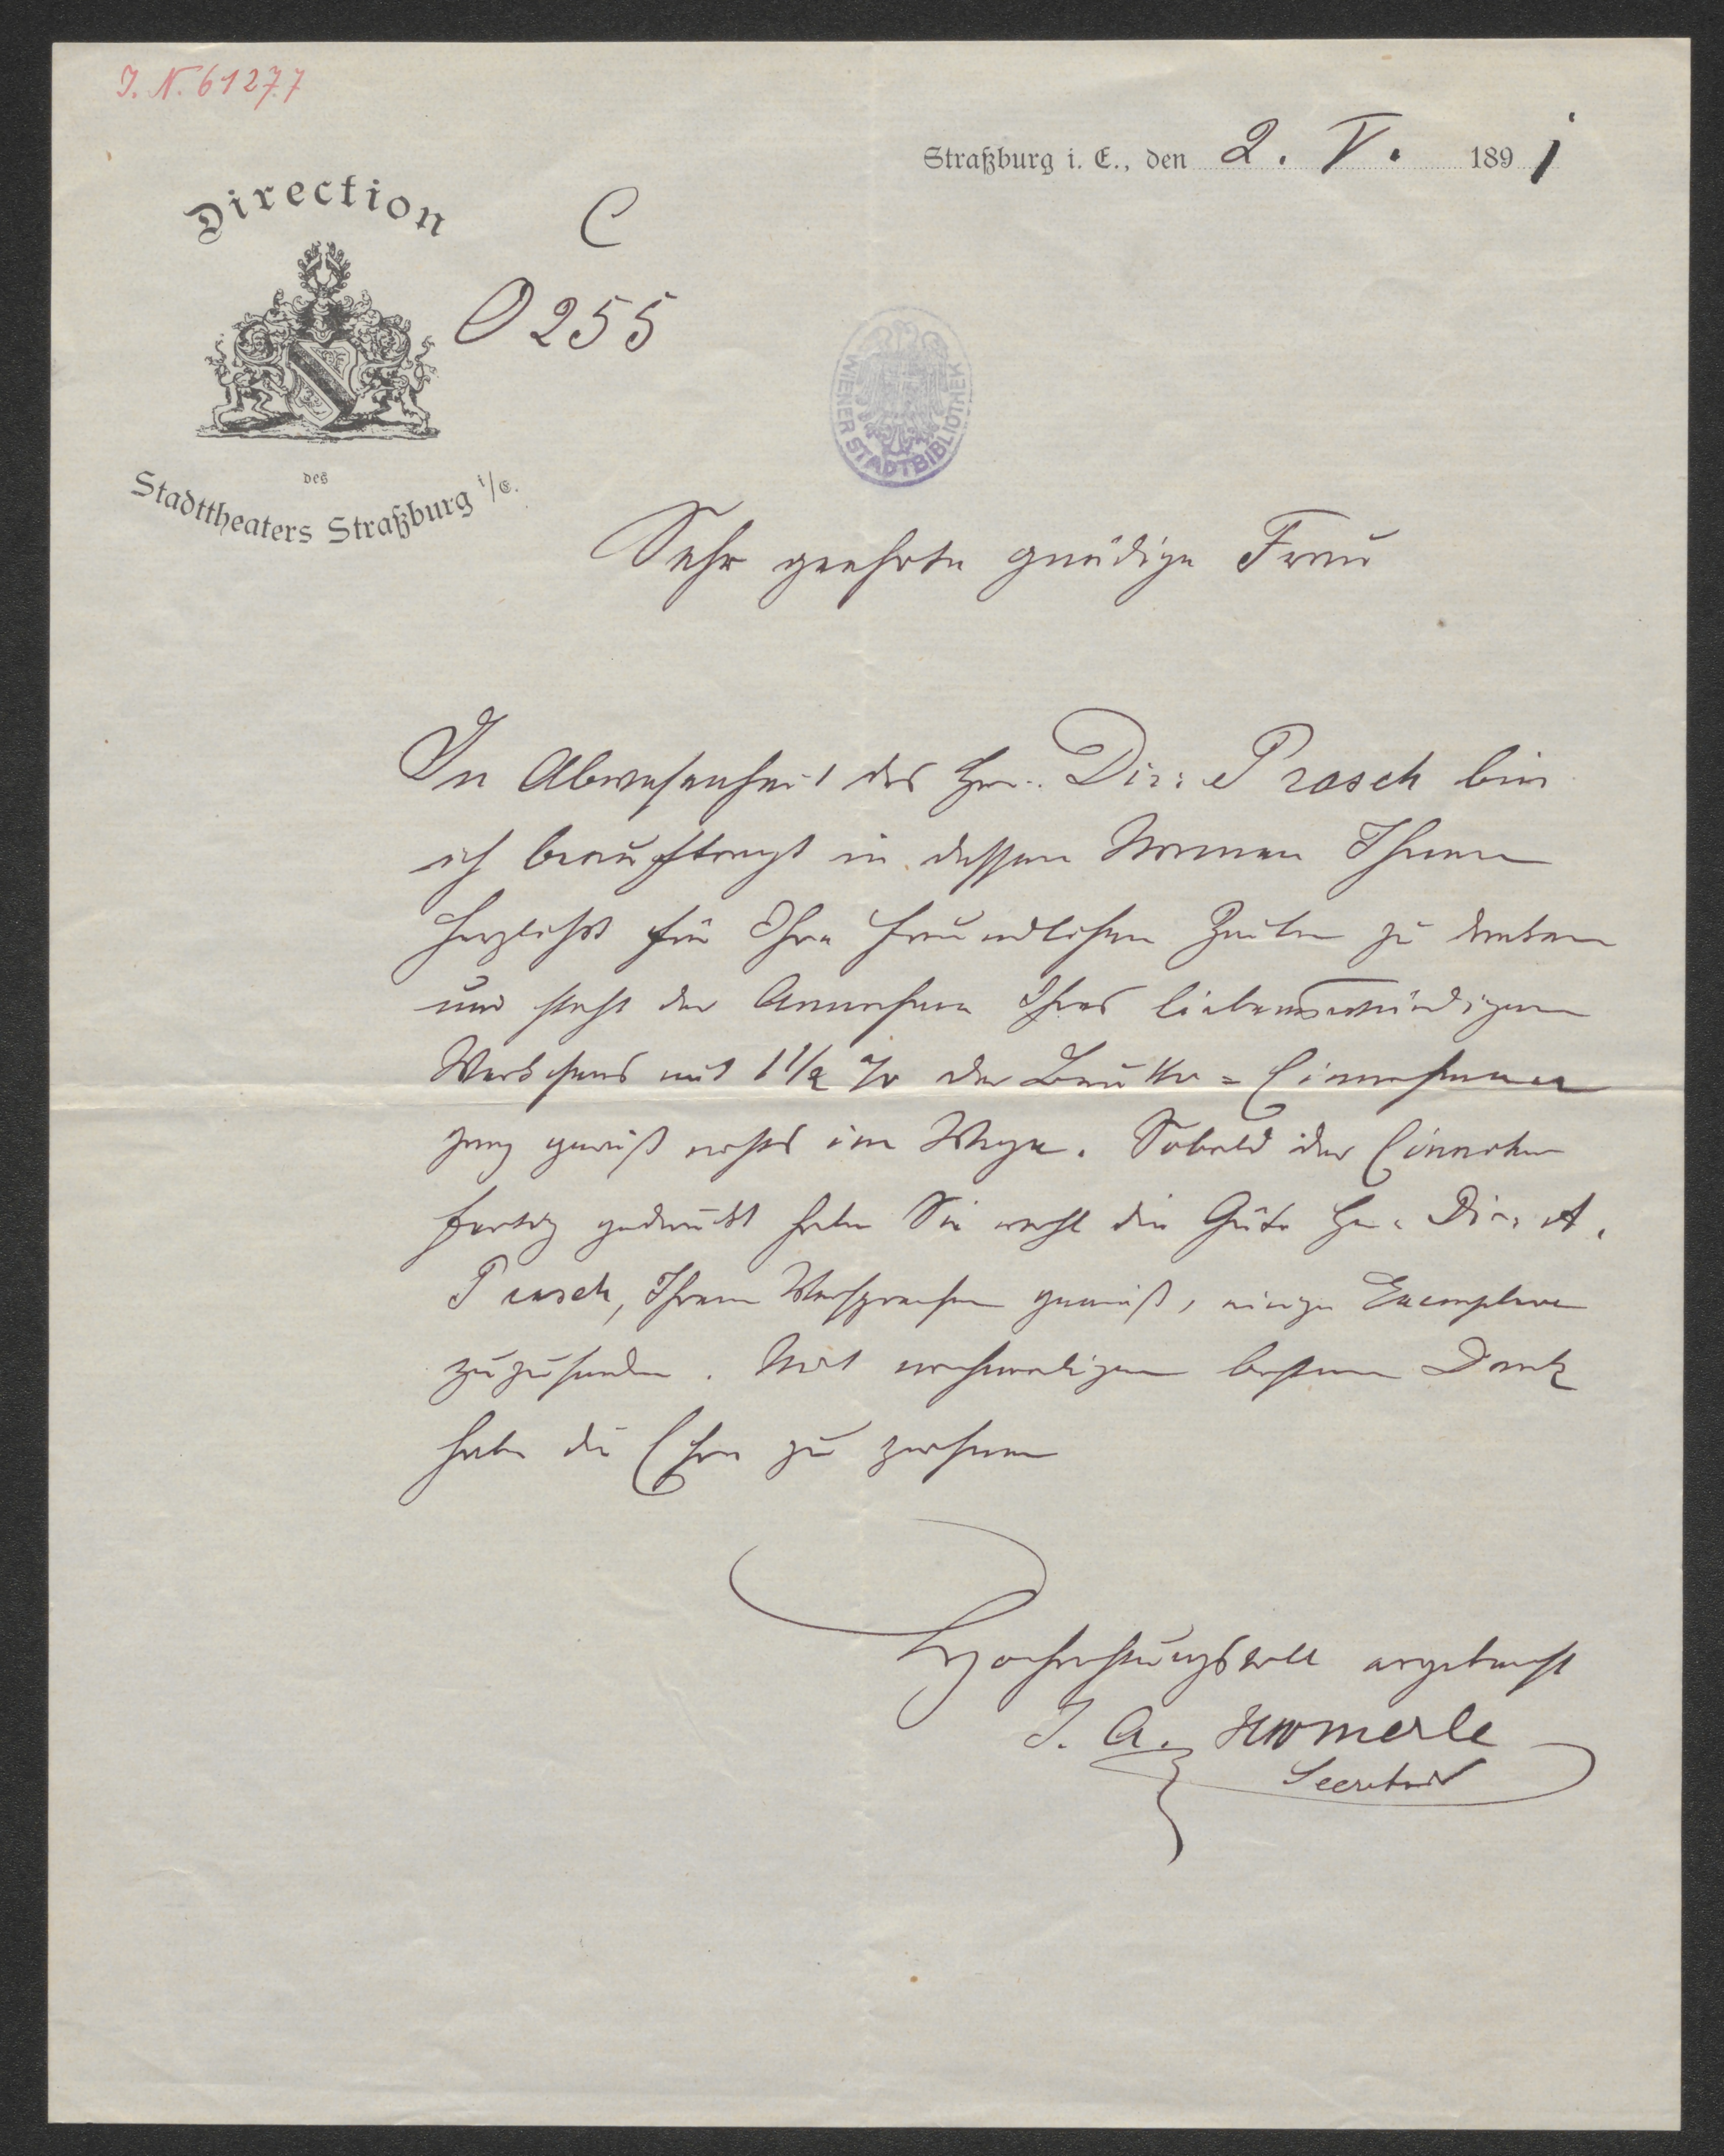 I. N. 61277
Straßburg i. E., den 2. V. 1891
Direction
C
O 255
des
Stadttheaters Straßburg i/E.
WIENER STADTBIBLIOTHEK
Sehr geehrte gnädige Frau
In Abwesenheit des Hrn. Dir: Prasch bin
ich beauftragt in dessen Namen Ihnen
herzlichst für Ihre freundlichen Zeilen zu danken
und steht der Annahme Ihres liebenswürdigen
Werkchens mit 1 1/2 % der Brutto=Einnahmen
ganz gewiß nichts im Wege. Sobald der Einakter
fertig gedruckt haben Sie wohl die Güte Hrn. Dir. A.
Prasch, Ihrem Versprechen gemäß, einige Exemplare
zuzusenden. Mit nochmaligem bestem Dank
habe die Ehre zu zeichnen
Hochachtungsvoll ergebenst
I. A.
Secretair